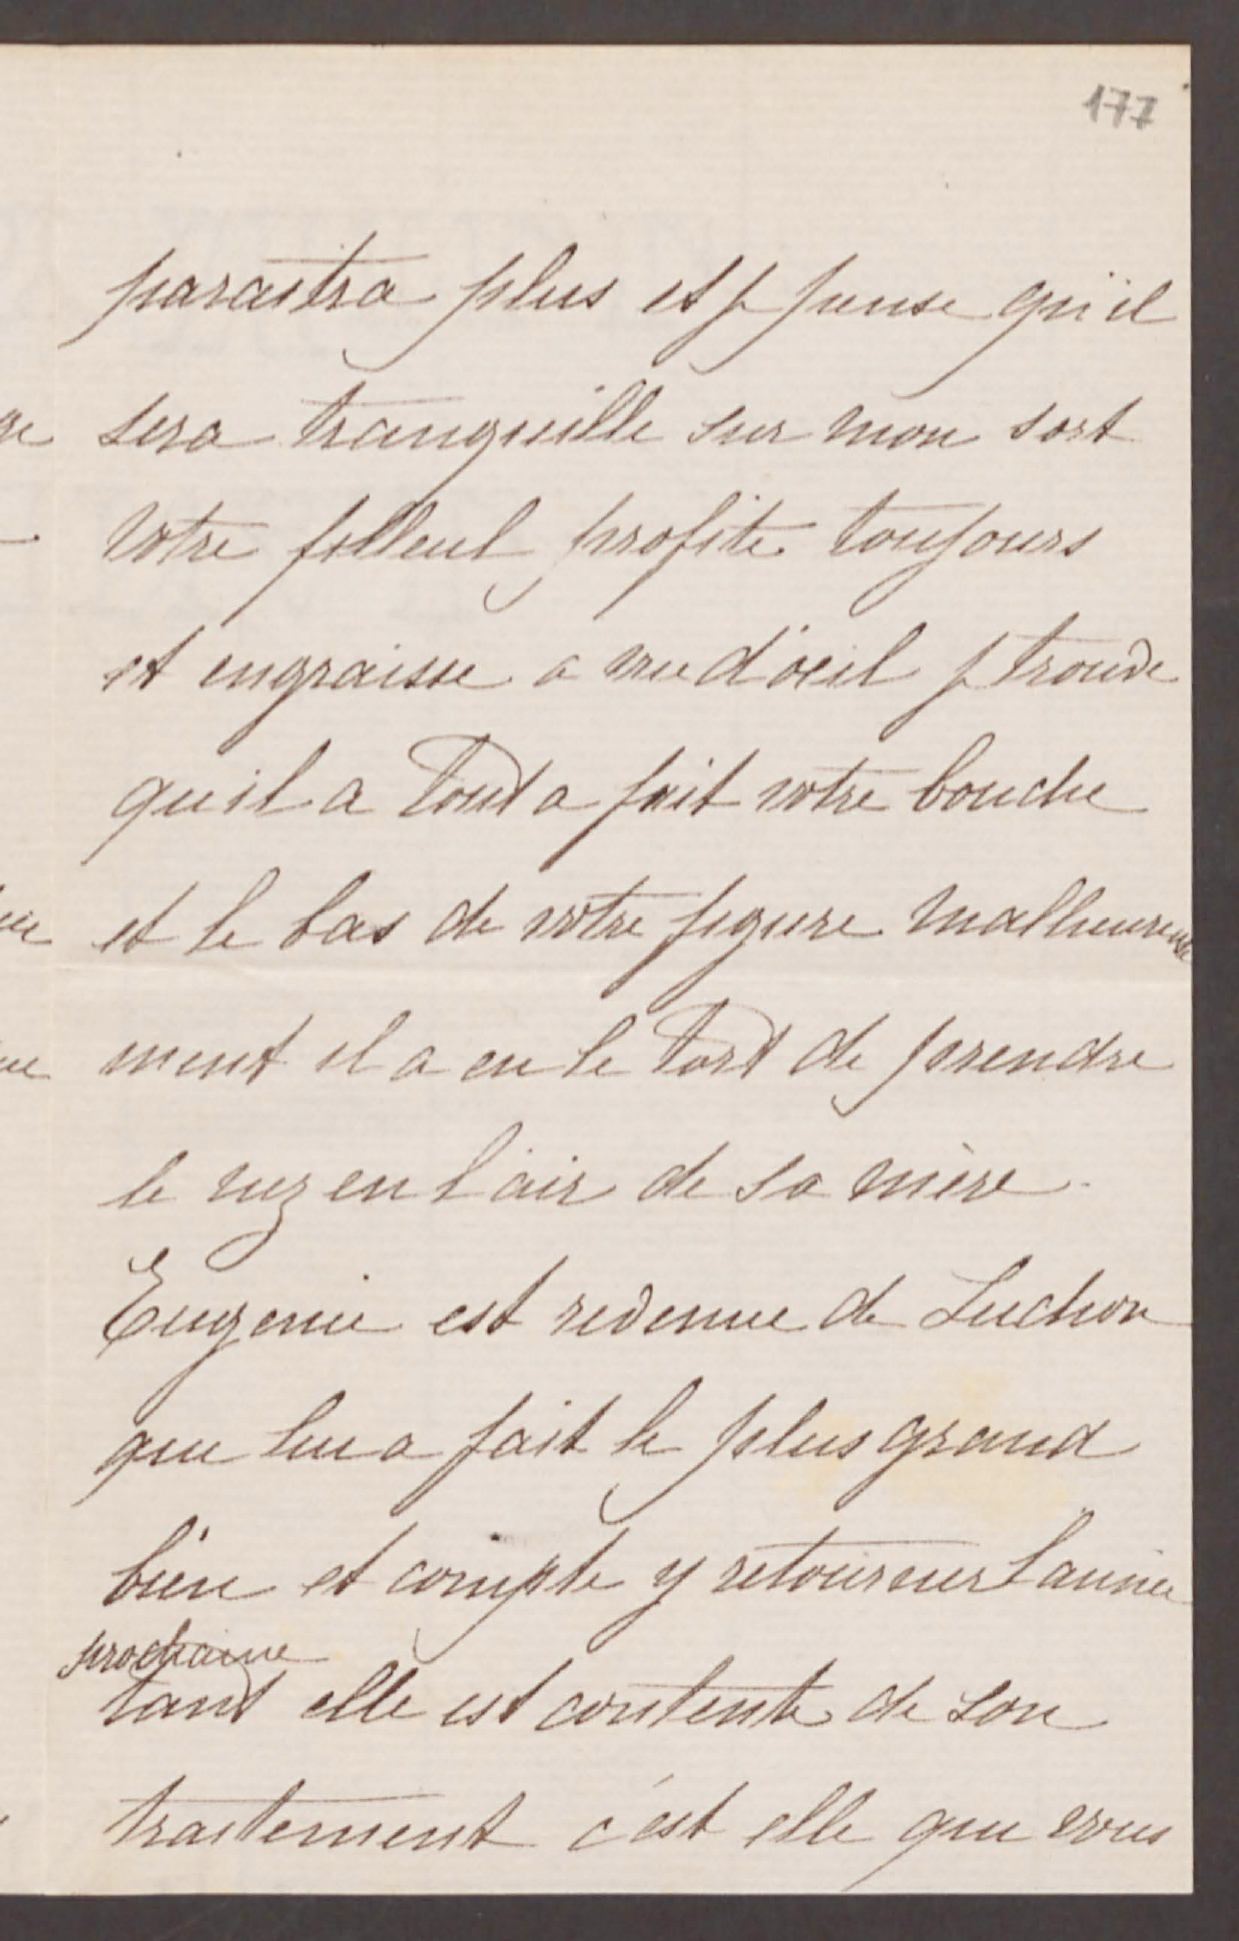 177
paraitra plus et j pense qu'il
sera tranquille sur mon sort
Votre filleul profite toujours
et engraisse a vue d'oeil j trouve
qu il a tout a fait votre bouche
et le bas de votre figure malheureuse
ment il a eu le tort de prendre
le nez en l'air de sa mère.
Eugenie est revenue de Luchon
qui lui a fait le plus grand
bien et compte y retourner l'année
prochaine
tant elle est contente de son
traitement c'est elle qui vous